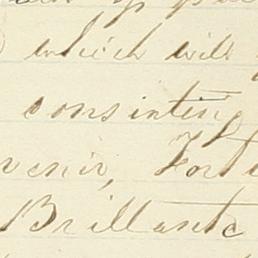 which will
consinting
venir, Fort
Brillante